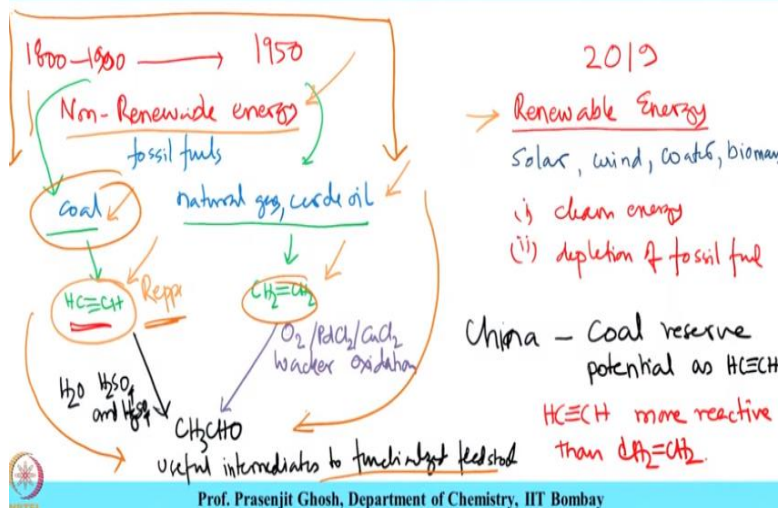 1800-1900 → 1950
Non-Renewable energy
fossil fuels
coal
natural gas, crude oil
HC≡CH Reppe
CH2=CH2
O2/PdCl2/CuCl2
Wacker Oxidation
H2O H2SO4
and
CH3CHO
useful intermediates to functionalized feedstock
2019
→ Renewable Energy
Solar, wind, water, biomass
(i) clean energy
(ii) depletion of fossil fuel
China – Coal reserve
potential as HC≡CH
HC≡CH more reactive
than CH2=CH2.
Prof. Prasenjit Ghosh, Department of Chemistry, IIT Bombay